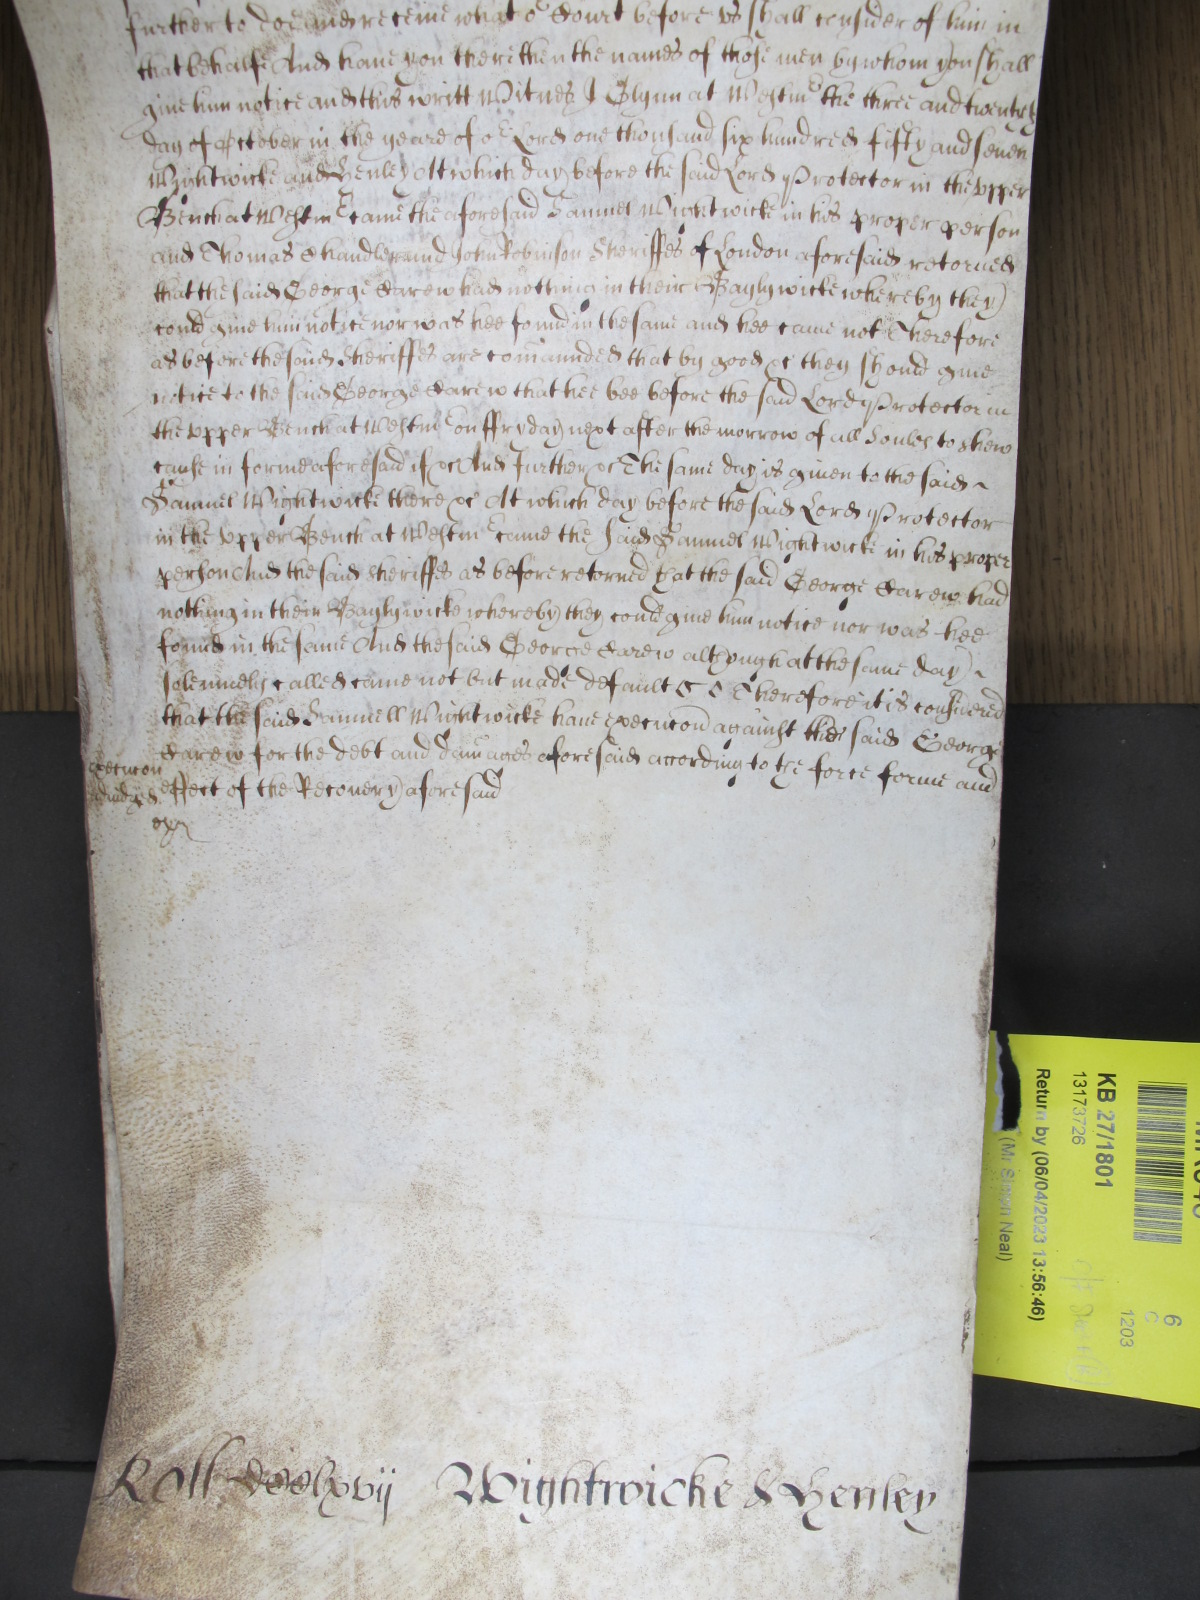 further to doe and receive what or Court before vs shall consider of him in
that behalfe And haue you there then the names of those men by whom you shall
giue him notice and this writt Witnes J Glynn at Westmr the three and twentieth
day of October in the yeare of or Lord one thousand six hundred fifty and seuen
Wightwicke and Henley At which day before the said Lord Protector in the vpper
Bench at Westmr came the aforesaid Samuel Wightwicke in his proper person
and Thomas Chandler and John Robinson Sheriffes of London aforesaid retorned
that the said George Carew had nothing in their Baylywicke whereby they
could giue him notice nor was hee found in the same and hee came not Therefore
as before the said Sheriffes are comaunded that by good &c they should giue
notice to the said George Carew that hee bee before the said Lord Protector in
the vpper Bench at Westmr on ffryday next after the morrow of all Soules to shew
cause in forme aforesaid if &c And further &c The same day is giuen to the said ~
Samuel Wightwicke there &c At which day before the said Lord Protector
in the vpper Bench at Westmr came the said Samuel Wightwicke in his proper
person And the said sheriffes as before retorned that the said George Carew had
nothing in their Baylywicke whereby they could giue him notice nor was hee
found in the same And the said George Carew although at the same day ~
solemnely called came not but made default Therefore it is considered
that the said Samuell Wightwicke haue execucon against the said George
Carew for the debt and damages aforesaid according to the force forme and
effect of the Recouery aforesaid
execucon
adiudged
exr
Roll dccclxvij Wightwicke & Henley
KB 27/1801
13173726
Return by (06/04/2023 13:56:46)
(Mr Simon Neal)
6
C
1203